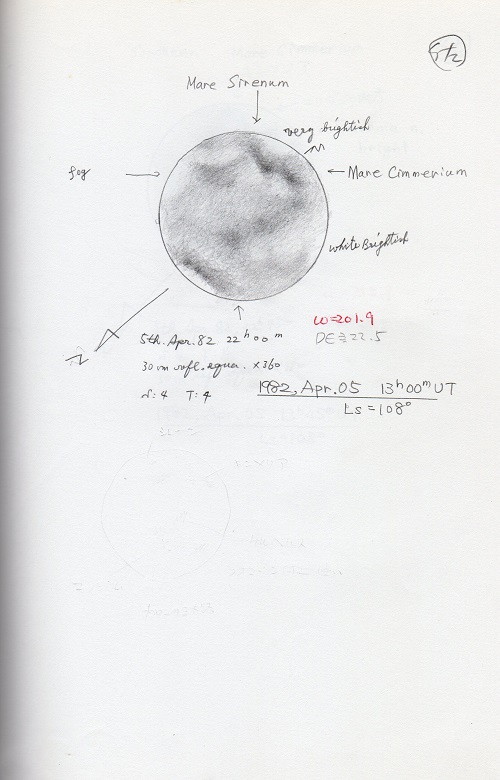 Mare Sirenum
very brightish
fog
Mare Cimmerium
white Brightish
ω=201.9
DE≒22.5
5th. Apr. 82 22ʰ00ᵐ
refl. equa. ×360
S: 4 T: 4
1982, Apr. 05 13ʰ00ᵐ UT
Ls=108°